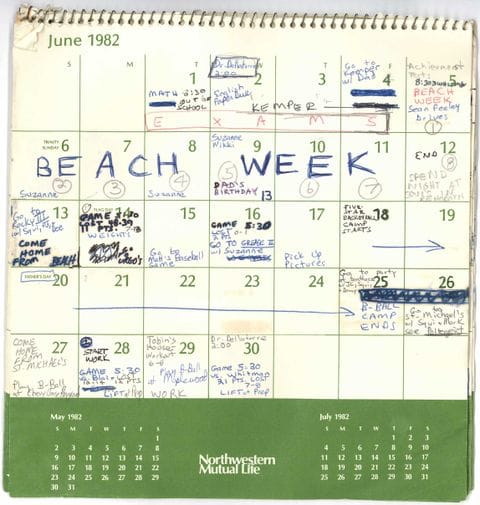 June 1982
S M T W T F S
1
MATH 8:30
OUT OF
SCHOOL
2
Dr. Dellatorre
2:00
English
Paper Due
3
4
Go to
Kemper
w/ Dad
5
Achievement
Test:
8:30
BEACH
WEEK
Sean Feeley
Drives
1
KEMPER
E X A M S
TRINITY
SUNDAY
6
7
8
9
10
11
12
BEACH WEEK
Suzanne
2
3
Suzanne
4
Suzanne
Nikki
5
DAD'S
BIRTHDAY
6
7
END
8
SPEND
NIGHT
13
Go to
Rocky III
w/
COME
HOME
FROM BEACH
14
GAME 5:30
LOST 48-39
WEIGHTS
15
Go to
Matt's Baseball
Game
16
GAME 5:30
GO TO GREASE II
w/ Suzanne
17
Pick Up
Pictures
18
FIVE-
STAR
BASKETBALL
CAMP
STARTS
19
FATHER'S DAY
20
21
22
23
24
25
Go to party
B-BALL
CAMP
ENDS
26
Go to
St. Michael's
w/ Squi + Mark
see
27
COME
HOME
FROM
ST. MICHAEL'S
Play B-Ball
at
28
START
WORK
GAME 5:30
29
Tobin's
House
Workout
Play B-Ball
at Maplewood
WORK
30
Dr. Dellatorre
2:00
Game 5:30
vs. Whitman
21 PTS. LOST
LIFT at Prep
May 1982
S M T W T F S
1
2 3 4 5 6 7 8
9 10 11 12 13 14 15
16 17 18 19 20 21 22
23 24 25 26 27 28 29
30 31
Northwestern
Mutual Life
July 1982
S M T W T F S
1 2 3
4 5 6 7 8 9 10
11 12 13 14 15 16 17
18 19 20 21 22 23 24
25 26 27 28 29 30 31